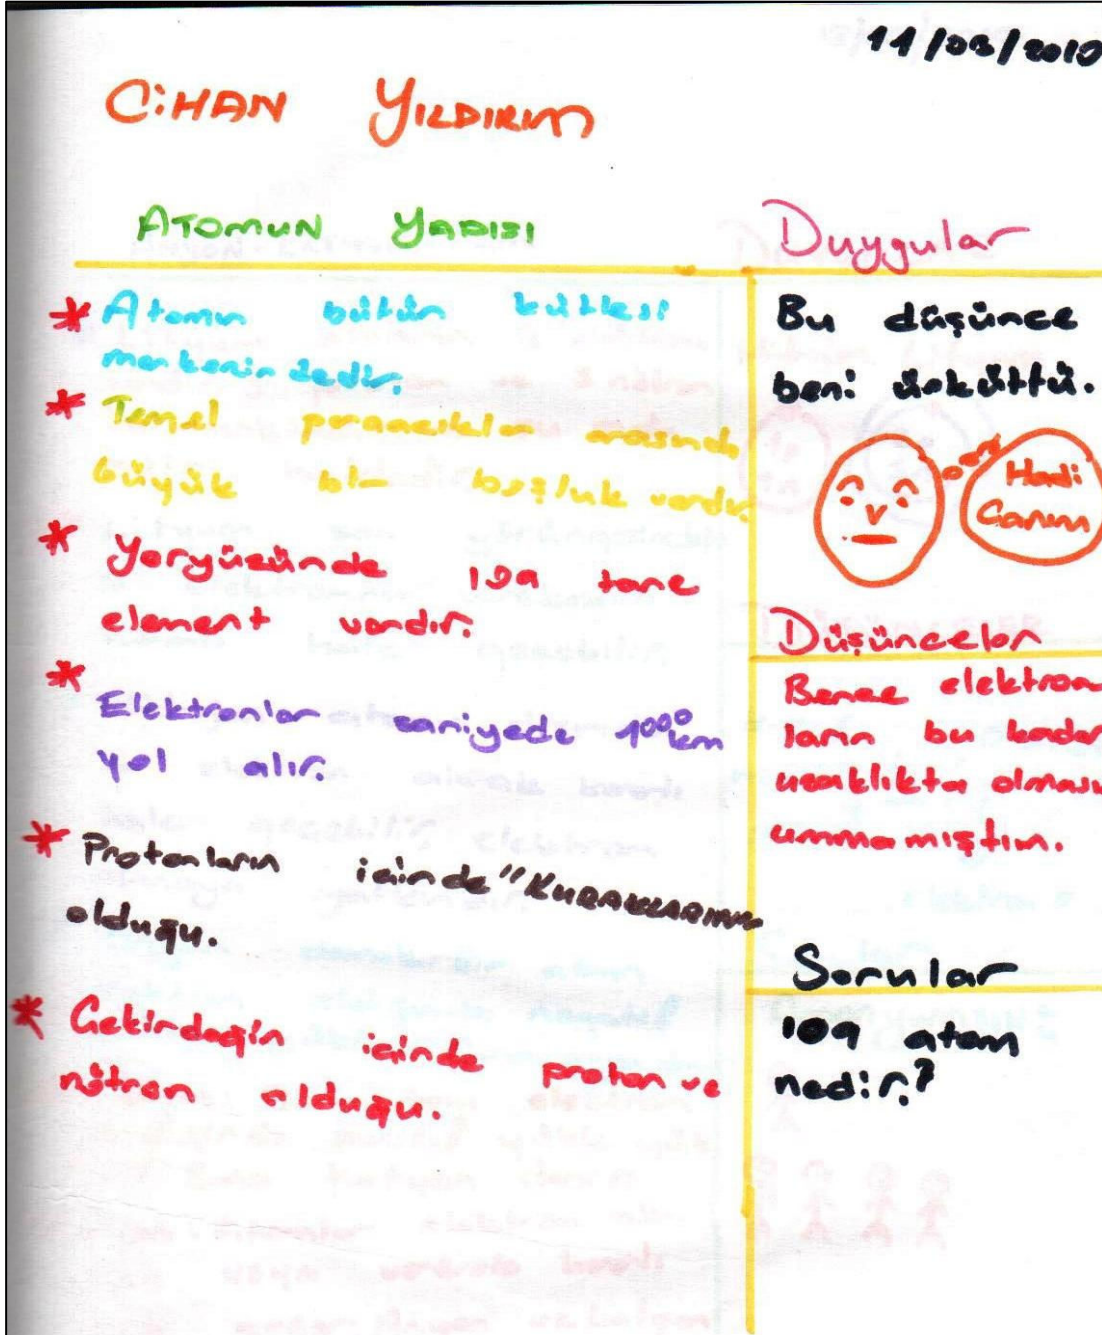 11/03/2010
CİHAN YILDIRIM
ATOMUN YAPISI
* Atomun bütün kütlesi
merkezindedir.
* Temel parçacıklar arasında
büyük bir boşluk vardır.
* Yeryüzünde 109 tane
element vardır.
* Elektronlar saniyede 1000 km
yol alır.
* Protonların içinde "KUARKLARIN"
olduğu.
* Çekirdeğin içinde proton ve
nötron olduğu.
Duygular
Bu düşünce
beni ürküttü.
Hadi
Canım
Düşünceler
Bence elektron
ların bu kadar
uzaklıkta olması
ummamıştım.
Sorular
109 atom
nedir?